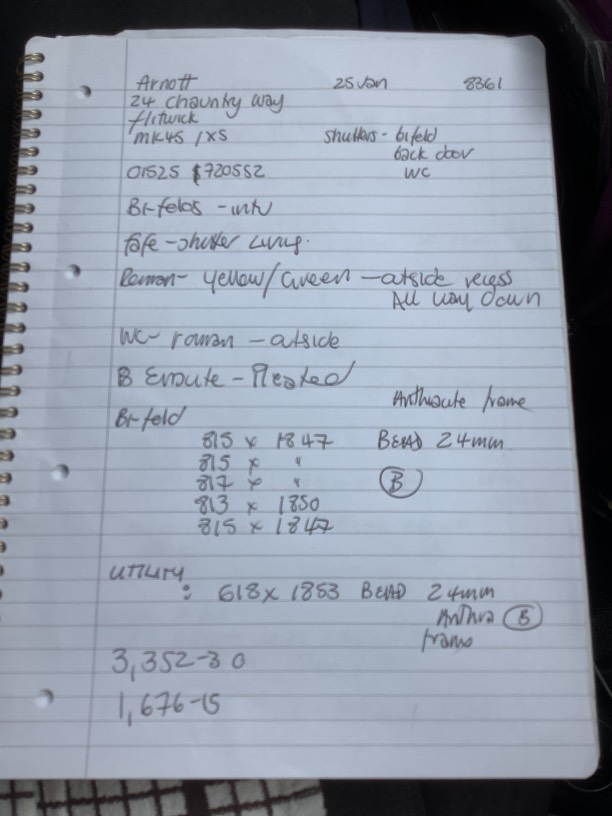 Arnott 25 Jan 8361
24 Chauntry Way
Flitwick
MK45 1XS Shutters - bifold
back door
01525 720552 WC
Bi-folds - intu
- shutter
Roman - Yellow/Green - outside recess
All way down
WC - roman - outside
B - Pleated
Anthracite frame
Bi-fold
815 x 1847 BEAD 24mm
815 x "
817 x " B
813 x 1850
815 x 1847
UTILITY
: 618 x 1853 BEAD 24mm
Anthra B
frame
3,352-30
1,676-15